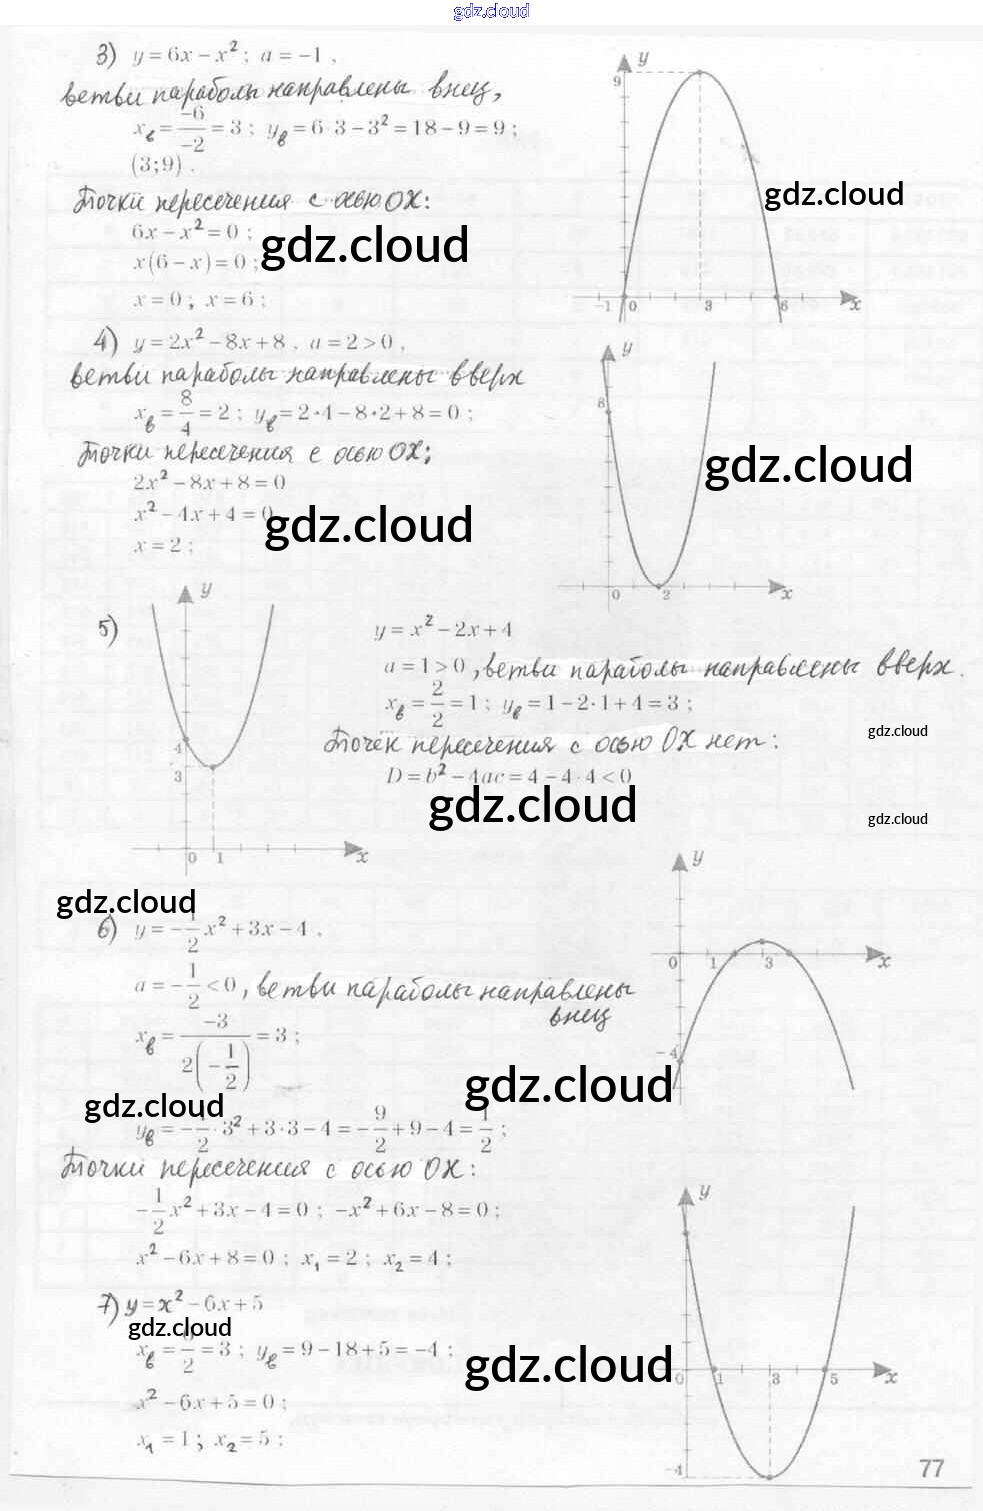 gdz.cloud
3) y = 6x − x²; a = −1,
ветви параболы направлены вниз,
xв = −6/−2 = 3; yв = 6·3 − 3² = 18 − 9 = 9;
(3;9).
Точки пересечения с осью ОХ:
6x − x² = 0;
x(6 − x) = 0;
x = 0; x = 6;
y
9
−1 0 3 6 x
gdz.cloud
gdz.cloud
4) y = 2x² − 8x + 8, a = 2 > 0,
ветви параболы направлены вверх
xв = 8/4 = 2; yв = 2·4 − 8·2 + 8 = 0;
Точки пересечения с осью ОХ:
2x² − 8x + 8 = 0
x² − 4x + 4 = 0
x = 2;
y
8
0 2 x
gdz.cloud
gdz.cloud
5)
y
4
3
0 1 x
y = x² − 2x + 4
a = 1 > 0, ветви параболы направлены вверх.
xв = 2/2 = 1; yв = 1 − 2·1 + 4 = 3;
Точек пересечения с осью ОХ нет:
D = b² − 4ac = 4 − 4·4 < 0
gdz.cloud
gdz.cloud
gdz.cloud
gdz.cloud
6) y = −1/2 x² + 3x − 4,
a = −1/2 < 0, ветви параболы направлены
вниз
xв = −3/2(−1/2) = 3;
yв = −1/2·3² + 3·3 − 4 = −9/2 + 9 − 4 = 1/2;
Точки пересечения с осью ОХ:
−1/2 x² + 3x − 4 = 0; −x² + 6x − 8 = 0;
x² − 6x + 8 = 0; x₁ = 2; x₂ = 4;
y
0 1 3 x
−4
gdz.cloud
gdz.cloud
7) y = x² − 6x + 5
xв = 6/2 = 3; yв = 9 − 18 + 5 = −4;
x² − 6x + 5 = 0;
x₁ = 1; x₂ = 5;
gdz.cloud
gdz.cloud
y
0 1 3 5 x
−4
77